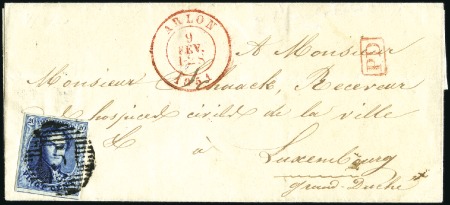 ARLON
9
FEV.
1851
PD
A Monsieur
Monsieur Schnack, Receveur
hospices civils de la ville
à
Luxembourg
Grand-Duché